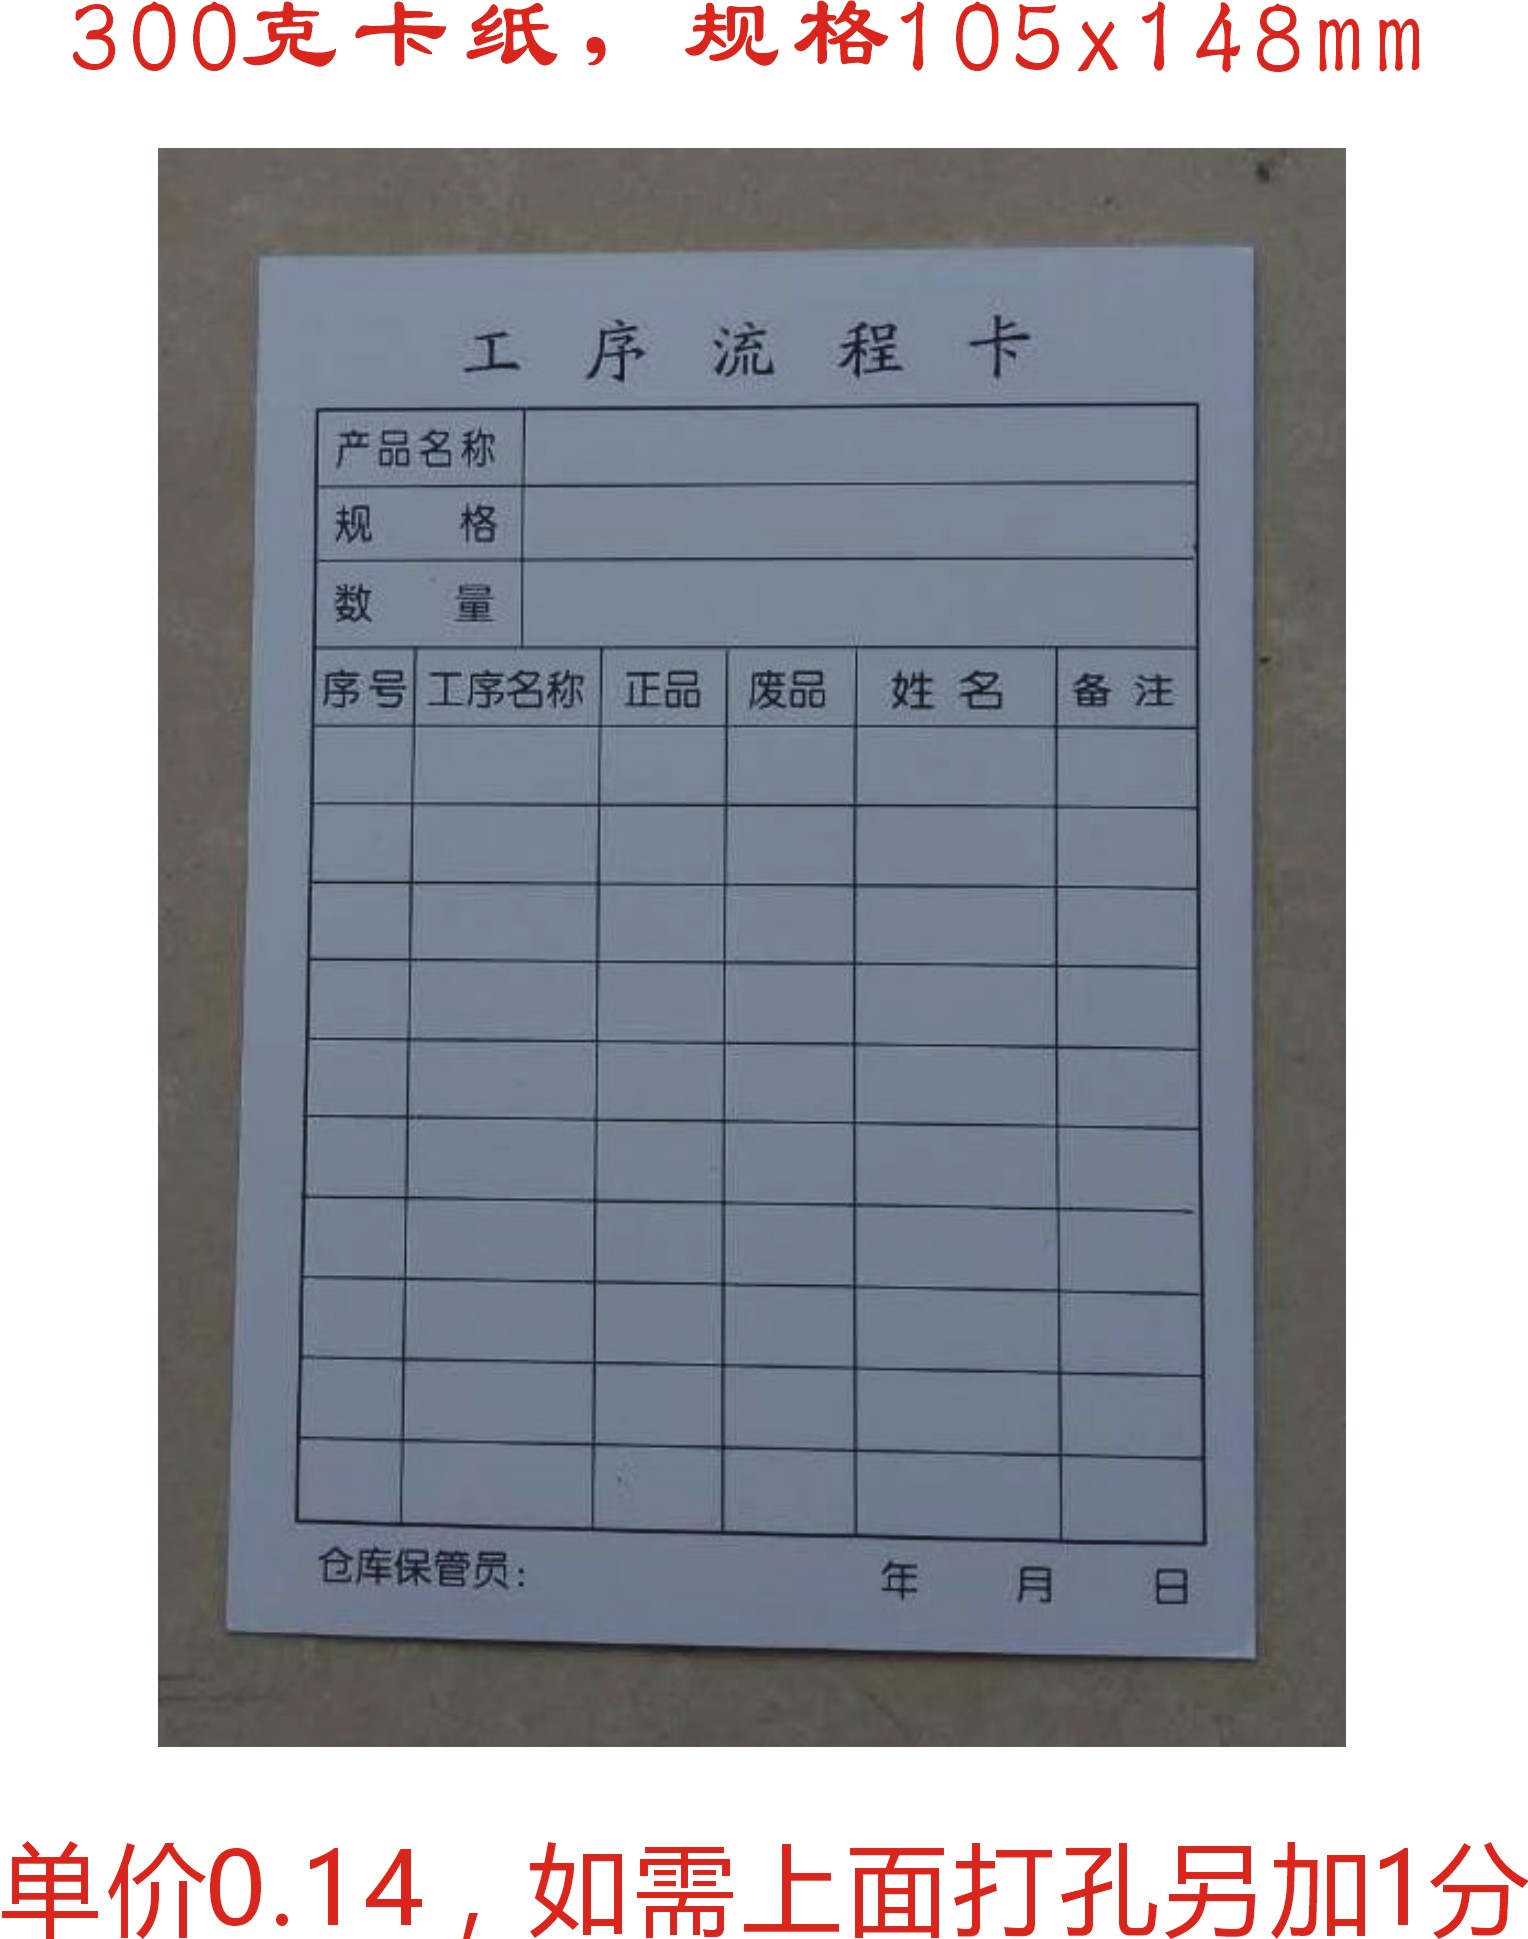 300克卡纸，规格105x148mm
工序流程卡
产品名称
规 格
数 量
序号 工序名称 正品 废品 姓名 备注
仓库保管员： 年 月 日
单价0.14，如需上面打孔另加1分